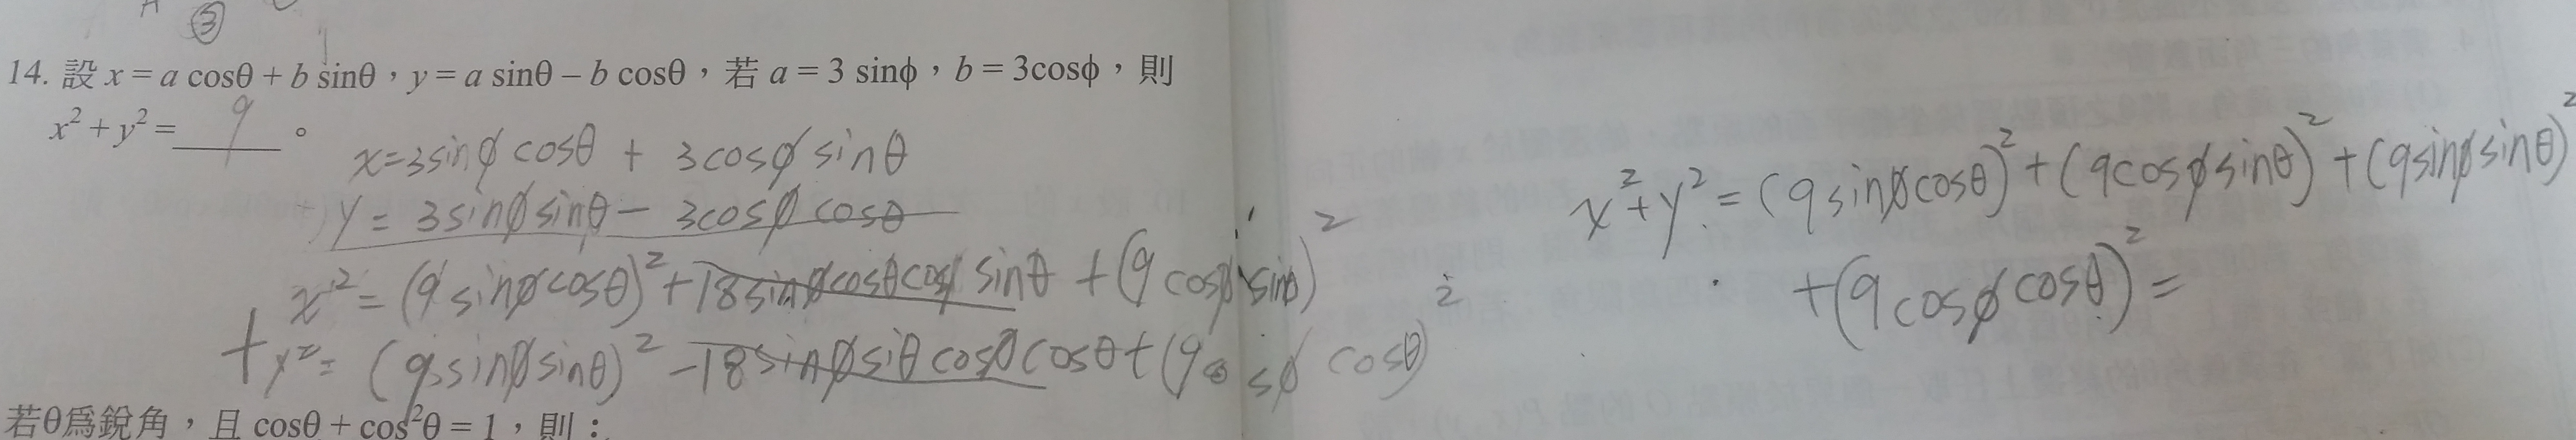 ③
14. 設 x = a cosθ + b sinθ，y = a sinθ – b cosθ，若 a = 3 sinϕ，b = 3cosϕ，則
x² + y² = 9 。
x=3sinϕ cosθ + 3cosϕ sinθ
y = 3sinϕ sinθ – 3cosϕ cosθ
x² = (9 sinϕ cosθ)² + 18 sinϕ cosθ cosϕ sinθ + (9 cosϕ sinθ)²
+ y² = (9 sinϕ sinθ)² – 18 sinϕ siθ cosϕ cosθ + (9cosϕ cosθ)
x² + y² = (9 sinϕ cosθ)² + (9cosϕ sinθ)² + (9sinϕ sinθ)²
+ (9 cosϕ cosθ)² =
若θ為銳角，且 cosθ + cos²θ = 1，則：